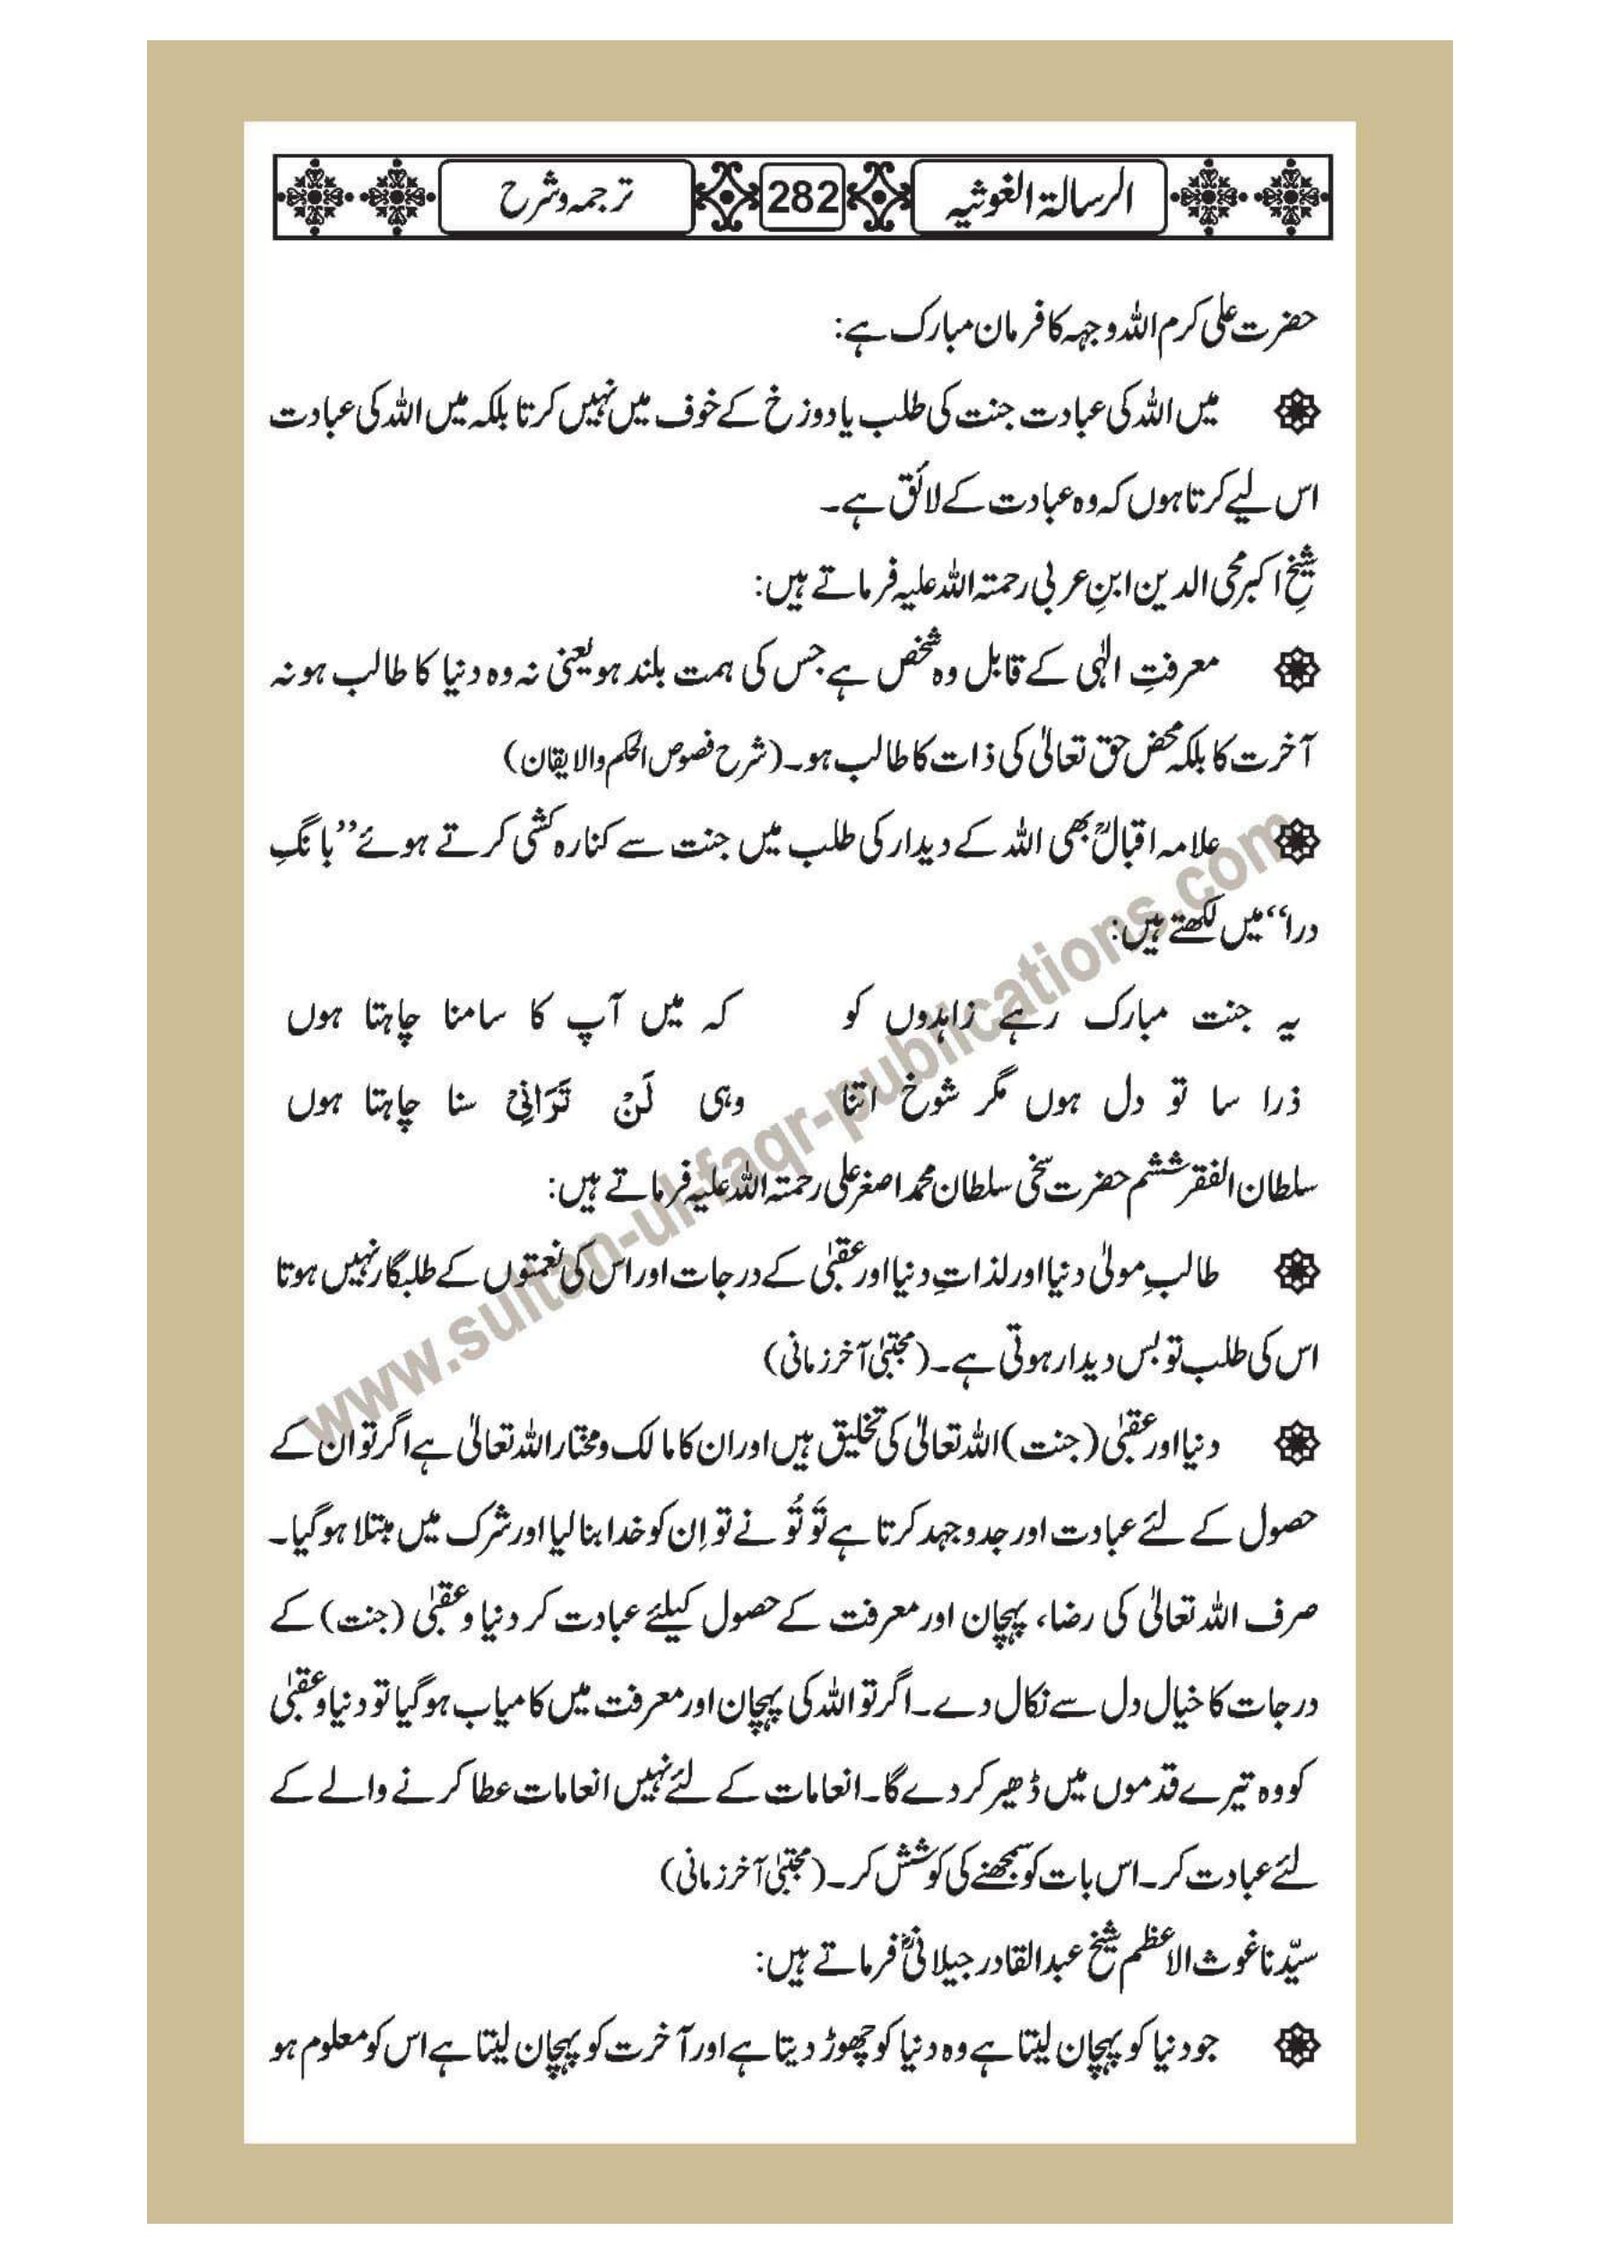 الرسالۃ الغوثیہ 282 ترجمہ و شرح
حضرت علی کرم اللہ وجہہ کا فرمان مبارک ہے:
میں اللہ کی عبادت جنت کی طلب یا دوزخ کے خوف میں نہیں کرتا بلکہ میں اللہ کی عبادت
اس لیے کرتا ہوں کہ وہ عبادت کے لائق ہے۔
شیخِ اکبر محی الدین ابنِ عربی رحمتہ اللہ علیہ فرماتے ہیں:
معرفتِ الٰہی کے قابل وہ شخص ہے جس کی ہمت بلند ہو یعنی نہ وہ دنیا کا طالب ہو نہ
آخرت کا بلکہ محض حق تعالیٰ کی ذات کا طالب ہو۔ (شرح فصوص الحکم والایقان)
علامہ اقبالؒ بھی اللہ کے دیدار کی طلب میں جنت سے کنارہ کشی کرتے ہوئے ’’بانگِ
درا‘‘ میں لکھتے ہیں:
یہ جنت مبارک رہے زاہدوں کو کہ میں آپ کا سامنا چاہتا ہوں
ذرا سا تو دل ہوں مگر شوخ اتنا وہی لَنْ تَرَانِیْ سنا چاہتا ہوں
سلطان الفقر ششم حضرت سخی سلطان محمد اصغر علی رحمتہ اللہ علیہ فرماتے ہیں:
طالبِ مولیٰ دنیا اور لذاتِ دنیا اور عقبیٰ کے درجات اور اس کی نعمتوں کے طلبگار نہیں ہوتا
اس کی طلب تو بس دیدار ہوتی ہے۔ (مجتبیٰ آخر زمانی)
دنیا اور عقبیٰ (جنت) اللہ تعالیٰ کی تخلیق ہیں اور ان کا مالک و مختار اللہ تعالیٰ ہے اگر تو ان کے
حصول کے لئے عبادت اور جدوجہد کرتا ہے تَو تُو نے تو اِن کو خدا بنا لیا اور شرک میں مبتلا ہو گیا۔
صرف اللہ تعالیٰ کی رضا، پہچان اور معرفت کے حصول کیلئے عبادت کر دنیا و عقبیٰ (جنت) کے
درجات کا خیال دل سے نکال دے۔ اگر تو اللہ کی پہچان اور معرفت میں کامیاب ہو گیا تو دنیا و عقبیٰ
کو وہ تیرے قدموں میں ڈھیر کر دے گا۔ انعامات کے لئے نہیں انعامات عطا کرنے والے کے
لئے عبادت کر۔ اس بات کو سمجھنے کی کوشش کر۔ (مجتبیٰ آخر زمانی)
سیّدنا غوث الاعظم شیخ عبدالقادر جیلانیؓ فرماتے ہیں:
جو دنیا کو پہچان لیتا ہے وہ دنیا کو چھوڑ دیتا ہے اور آخرت کو پہچان لیتا ہے اس کو معلوم ہو
www.sultan-ul-faqr-publications.com